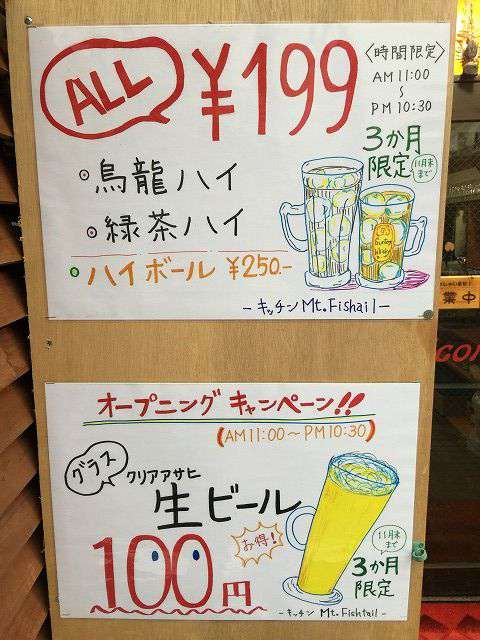 ALL ¥199
〈時間限定〉
AM 11:00
～
PM 10:30
3か月
限定
11月末
まで
◎烏龍ハイ
◎緑茶ハイ
◎ハイボール ¥250.-
-キッチン Mt.Fishail-
業中
オープニング キャンペーン!!
(AM11:00～PM10:30)
グラス
クリアアサヒ
生ビール
お得!
100円
11月末
まで
3か月
限定
-キッチン Mt.Fishtail-